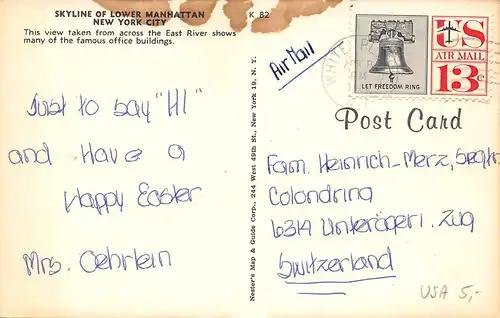 SKYLINE OF LOWER MANHATTAN
NEW YORK CITY
This view taken from across the East River shows
many of the famous office buildings.
K 82
Air Mail
Just to say "HI"
and Have a
Happy Easter
Mrs. Oehrlein
Nester's Map & Guide Corp., 244 West 49th St., New York 19, N. Y.
WHITE
LET FREEDOM RING
US
AIR MAIL
13c
Post Card
Fam. Heinrich-Merz,
Colondring
6314 Unterägeri. Zug
Switzerland
USA 5,-